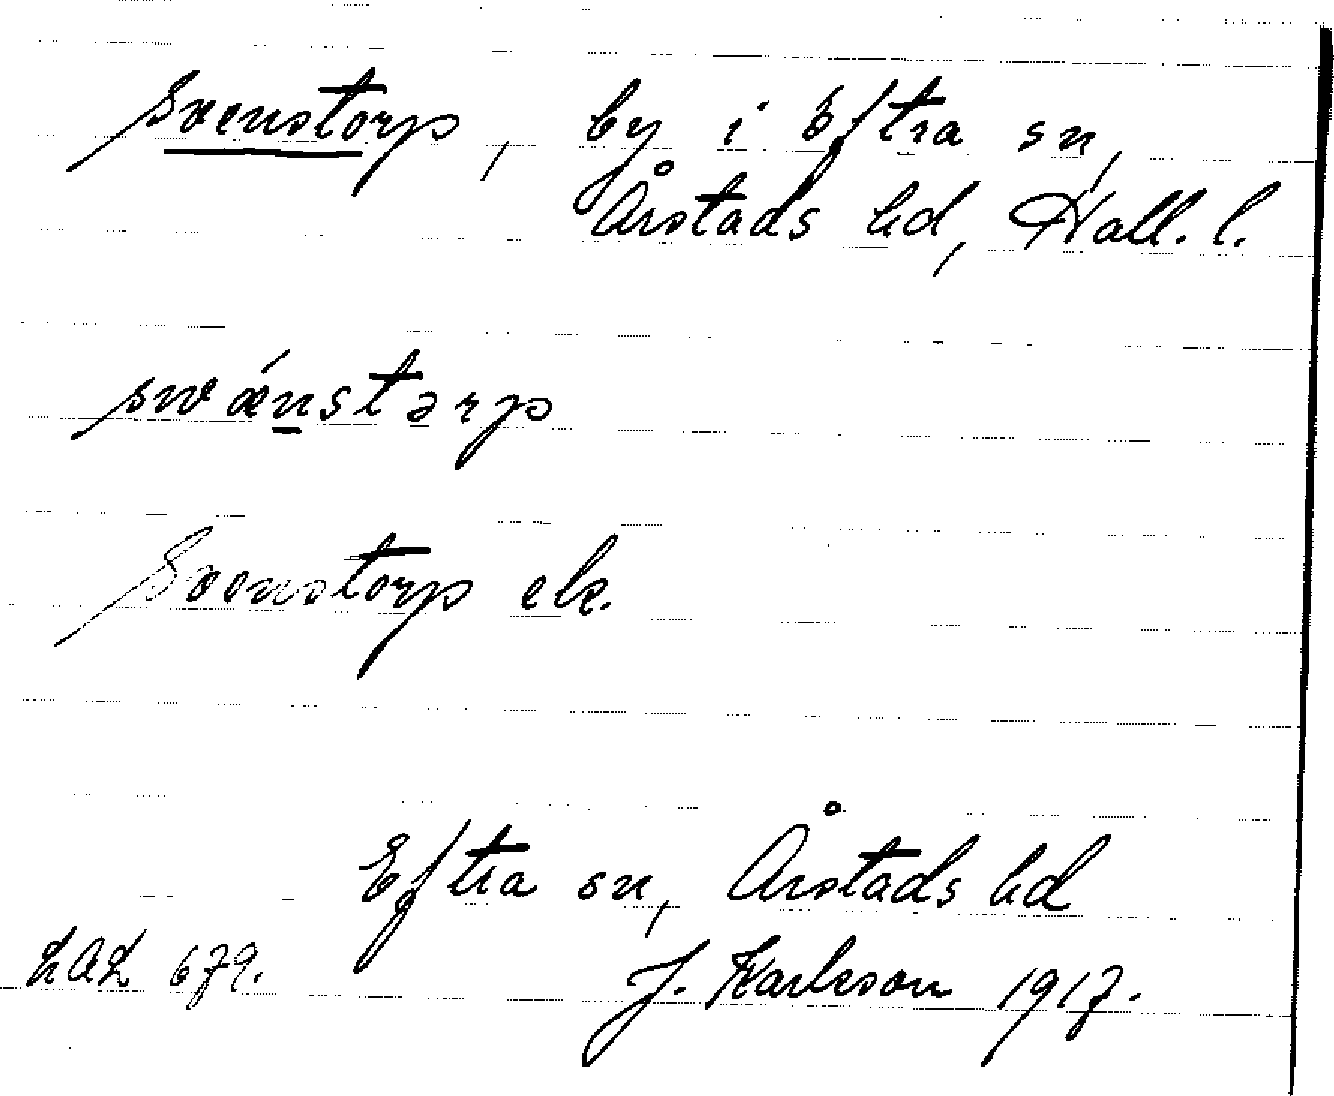 Svenstorp, by i Eftra sn,
Årstads hd, Hall. l.
swǽnstərp
Svenstorp ek.
Eftra sn, Årstads hd
LAL 679. J. Karlsson 1917.